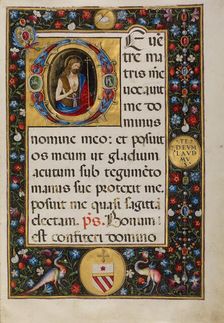 De ventre
matris meę
vocavit me do
minus
nomine meo: et posuit
os meum ut gladium
acutum sub tegumēto
manus suę protexit me.
posuit me quasi sagittā
electam. p̄s. Bonum:
est confiteri domino
TE
DEVM
LAVD
MVS